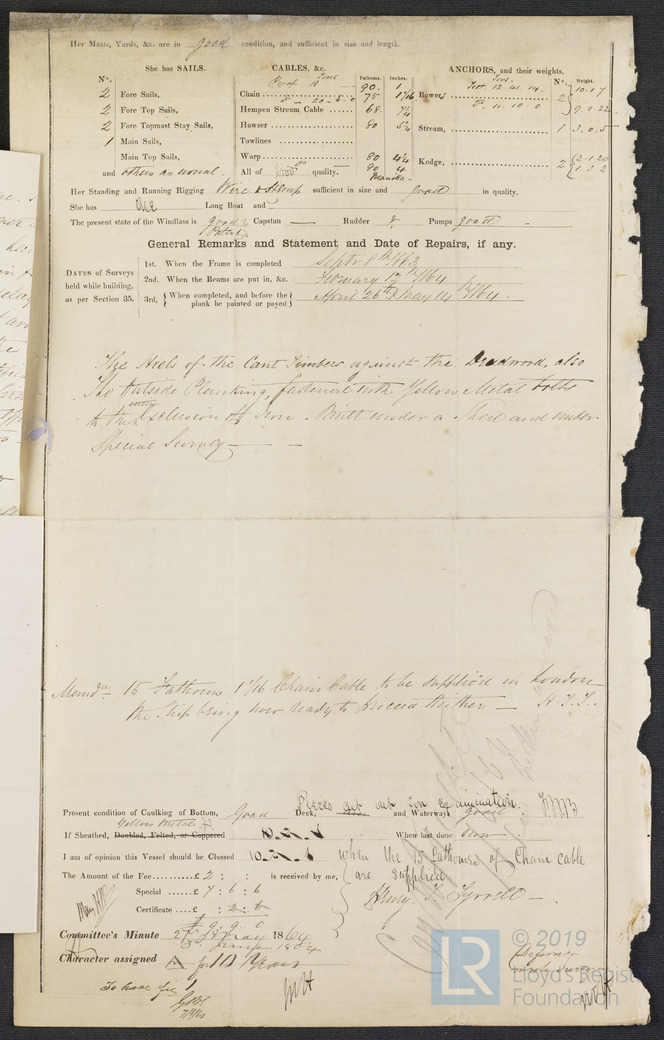 Her Masts, Yards, &c. are in good condition, and sufficient in size and length.
She has SAILS.
CABLES, &c.
Fathoms. Inches.
ANCHORS, and their weights.
Nº.
Proof 18 Tons
Nº. Weight.
2 Fore Sails,
Chain 90 1
75 1 1/16
Bowers 2 10.1.7
9.1.22
2 Fore Top Sails,
Hempen Stream Cable 68
2 Fore Topmast Stay Sails,
Hawser 80 5½
Stream, 1 3.0.5
1 Main Sails,
Towlines
Main Top Sails,
Warp 80 4½
80 4
Kedge, 2 2.1.20
1.3.2
and others as usual.
All of good quality.
Her Standing and Running Rigging Wire & Hemp sufficient in size and good in quality.
She has One Long Boat and
The present state of the Windlass is good Patent Capstan — Rudder & Pumps good
General Remarks and Statement and Date of Repairs, if any.
DATES of Surveys held while building, as per Section 35.
1st. When the Frame is completed Septr 8th 1863
2nd. When the Beams are put in, &c. February 12th 1864
3rd. When completed, and before the plank be painted or payed April 26th & May 14th 1864.
The Heels of the Cant Timbers against the Deadwood, also
The Outside Planking, fastened with Yellow Metal bolts
to the entire Exclusion of Iron - Built under a Shed and under
Special Survey —
Memdm. 15 Fathoms 1 1/16 Chain Cable to be supplied in London
the Ship being now ready to proceed thither — H.T.T.
Pieces cut out for examination.
Present condition of Caulking of Bottom, Good Deck, and Waterways good
Yellow Metal
If Sheathed, Doubled, Felted, or Coppered When last done Now
I am of opinion this Vessel should be Classed 10.A.1 when the 15 Fathoms of Chain cable
are supplied
The Amount of the Fee £ 2 : : is received by me,
Special £ 7 : 6 : 6
Henry T. Tyrrell —
Certificate £ : 2 : 6
£ 9. 9. 0
Committee's Minute 27 May 1864
3rd June 1864
Character assigned A 1 for 10 Years
© 2019
Lloyd's Register
Foundation
LR